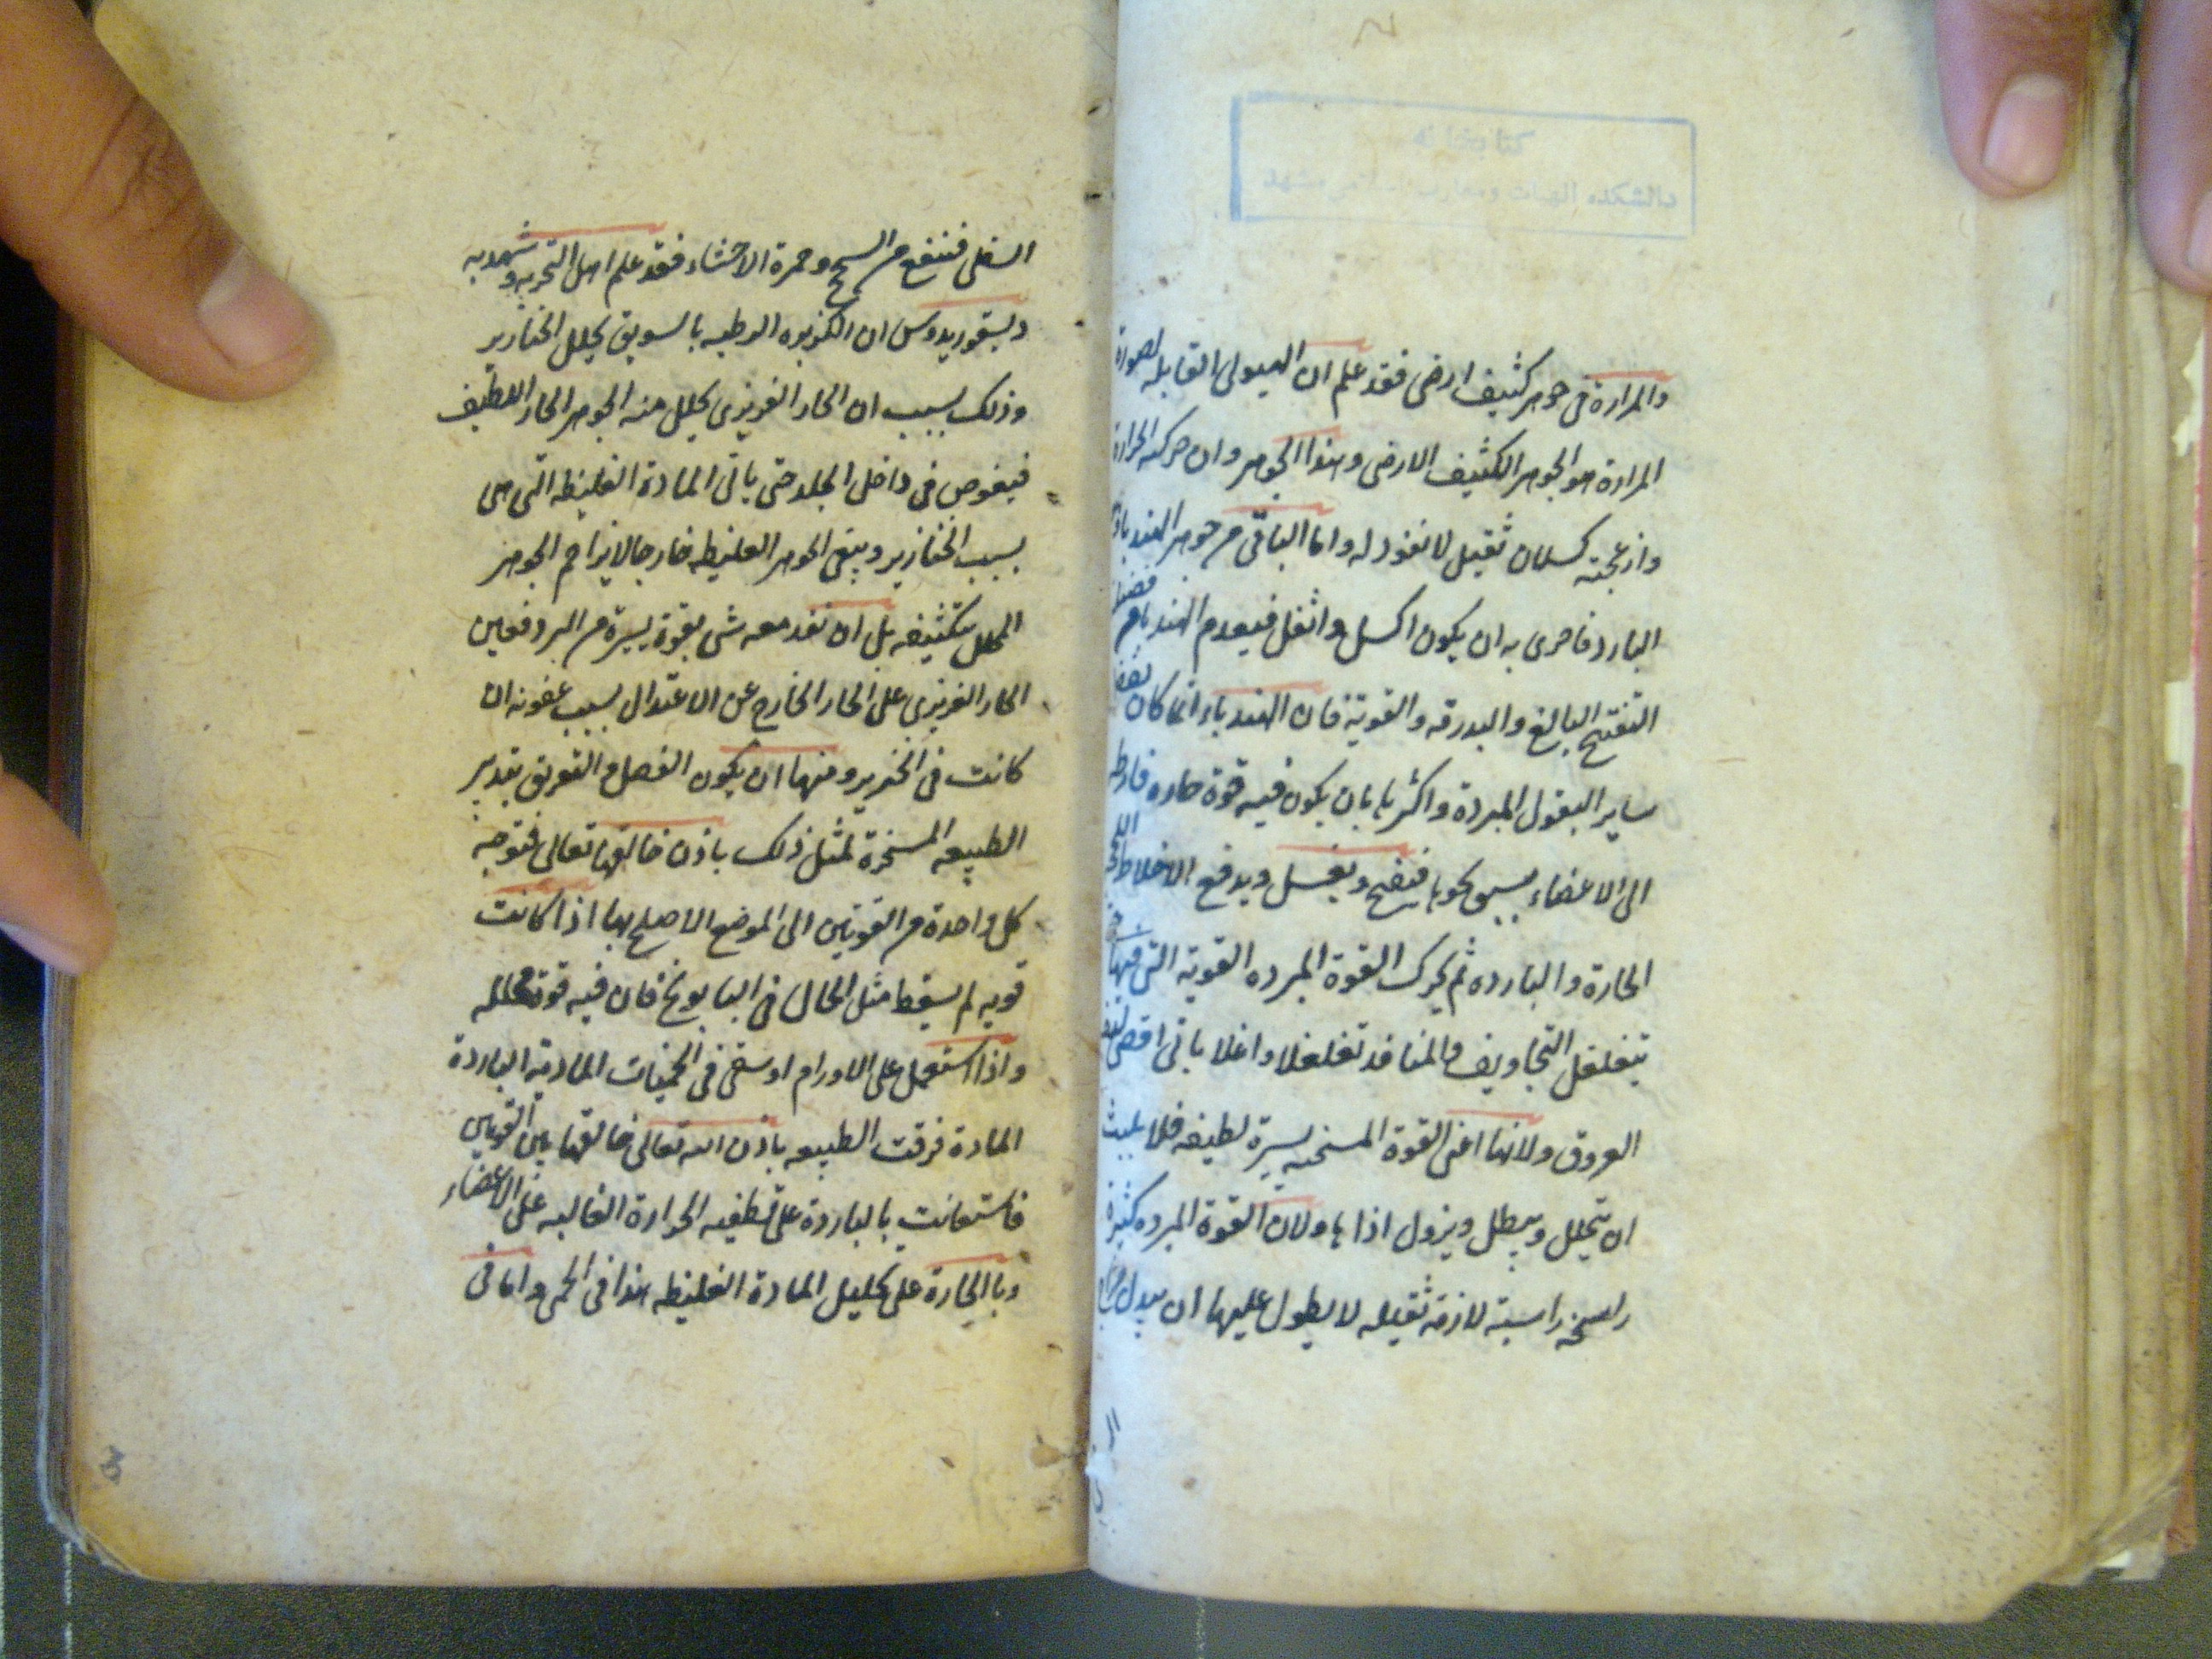 كتابخانه
دانشكده الهيات ومعارف اسلامى مشهد
والمرارة فى جوهر كثيف ارضى فقد علم ان الهيولى القابله لصورة
المرارة هو الجوهر الكثيف الارضى وهذا الجوهر وان حركته الحرارة
وازعجته كسلان ثقيل لا نفوذ له واما الباقى من جوهر الهندباء
البارد فاحرى به ان يكون اكسل واثقل فيعدم الهندباء
التفتيح البالغ والبدرقه والقوية فان الهندباء انما كان
ساير البقول المبردة واكثرها بان يكون فيه قوة حاره
الى الاعضاء يسبق نحوها فيفتح ويغسل ويدفع الاخلاط
الحارة والبارده ثم يحرك القوة المبرده القوية التى فيها
يتغلغل التجاويف والمنافذ تغلغلا واغلا ياتى اقصى
العروق ولانها اعنى القوة المسخنه يسيرة لطيفه فلا يلبث
ان يتحلل ويبطل ويزول اذاها ولان القوة المبرده كثيرة
راسخه راسبة لازمة ثقيله لا يطول عليها ان يبدل
السفلى فينفع من السحج وحمرة الاحشاء فقد علم اهل التجربه وشهد به
ديسقوريدوس ان الكزبره الرطبه بالسويق يحلل الخنازير
وذلك بسبب ان الحار الغريزى يحلل منه الجوهر الحار اللطيف
فيغوص فى داخل الجلد حتى ياتى المادة الغليظه التى هى
بسبب الخنازير ويبقى الجوهر الغليظه خارجا لا يزاحم الجوهر
المحلل بتكثيفه بل ان نفذ معه شى بقوة يسيرة من البرد فيعين
الحار الغريزى على الحار الخارج عن الاعتدال بسبب عفونه ان
كانت فى الخنزير ومنها ان يكون الفصل والتفريق بتدبير
الطبيعه المسخرة لمثل ذلك باذن خالقها تعالى فتوجه
كل واحدة من القوتين الى الموضع الاصلح لها اذا كانت
قويه لم يسقط مثل الحال فى البابونج فان فيه قوة محلله
واذا استعمل على الاورام او سقى فى الحميات المادية الباردة
المادة فرقت الطبيعه باذن الله تعالى خالقها بين القوتين
فاستعانت بالباردة على تطفيه الحرارة الغالبه على الاعضاء
وبالحارة على تحليل المادة الغليظه هذا فى الحمى واما فى